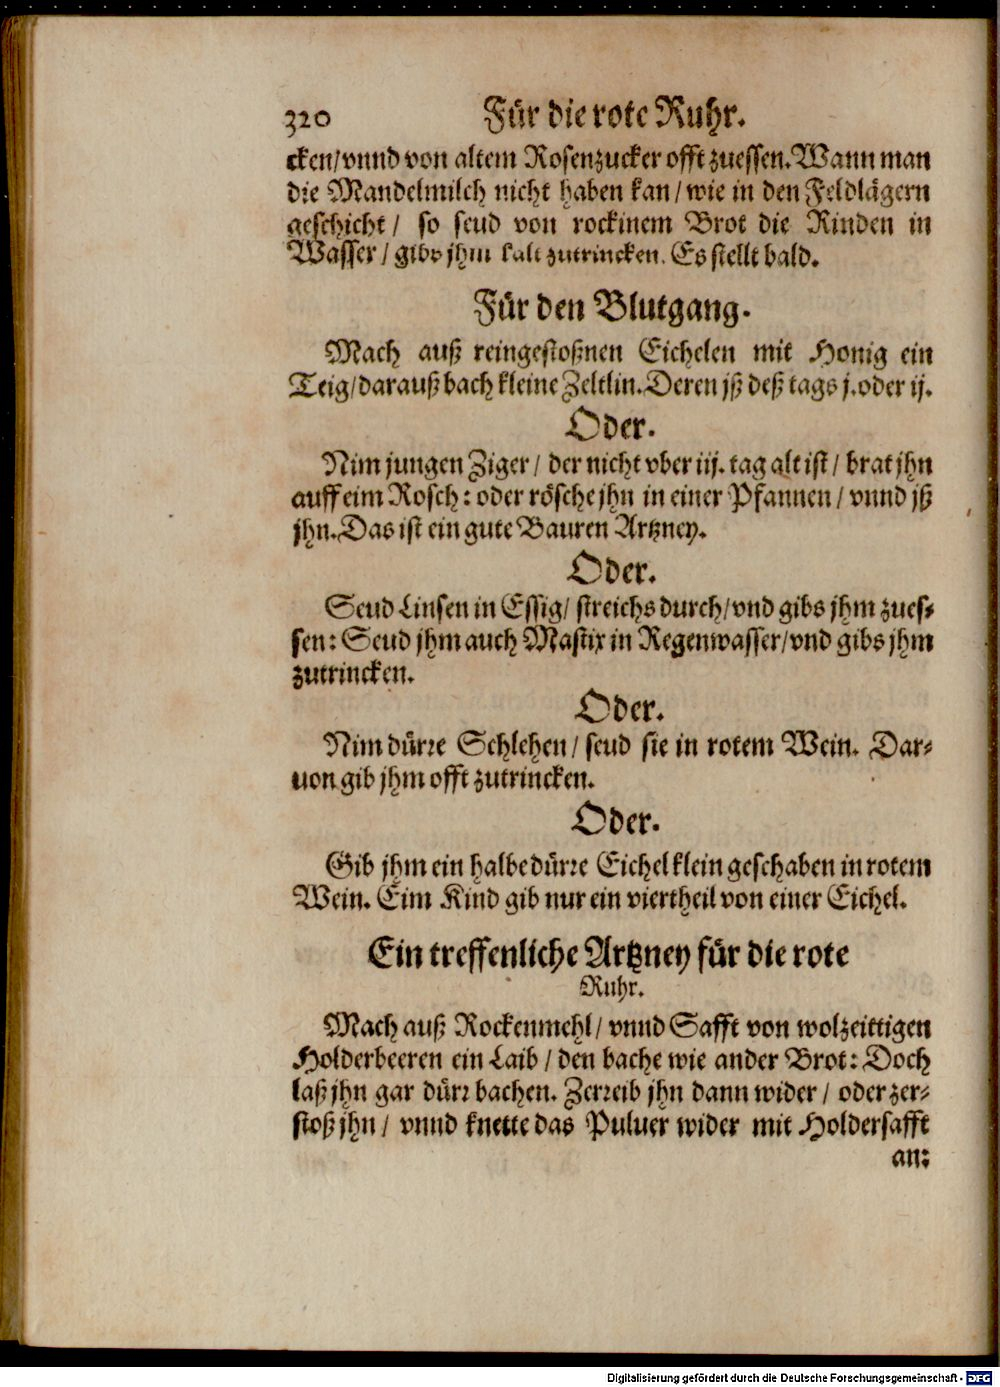 320 Für die rote Ruhr.
cken/vnnd von altem Rosenzucker offt zuessen. Wann man
die Mandelmilch nicht haben kan/ wie in den Feldlägern
geschicht/ so seud von rockinem Brot die Rinden in
Wasser/ gibs jhm kalt zutrincken. Es stellt bald.
Für den Blutgang.
Mach auß reingestoßnen Eichelen mit Honig ein
Teig/darauß bach kleine Zeltlin. Deren jß deß tags j. oder ij.
Oder.
Nim jungen Ziger/ der nicht vber iij. tag alt ist/ brat jhn
auff eim Rosch: oder rösche jhn in einer Pfannen/ vnnd jß
jhn. Das ist ein gute Bauren Artzney.
Oder.
Seud Linsen in Essig/ streichs durch/vnd gibs jhm zues-
sen: Seud jhm auch Mastix in Regenwasser/vnd gibs jhm
zutrincken.
Oder.
Nim dürre Schlehen/ seud sie in rotem Wein. Dar-
uon gib jhm offt zutrincken.
Oder.
Gib jhm ein halbe dürre Eichel klein geschaben in rotem
Wein. Eim Kind gib nur ein viertheil von einer Eichel.
Ein treffenliche Artzney für die rote
Ruhr.
Mach auß Rockenmehl/ vnnd Safft von wolzeittigen
Holderbeeren ein Laib/ den bache wie ander Brot: Doch
laß jhn gar dürr bachen. Zerreib jhn dann wider/ oder zer-
stoß jhn/ vnnd knette das Puluer wider mit Holdersafft
an:
Digitalisierung gefördert durch die Deutsche Forschungsgemeinschaft - DFG